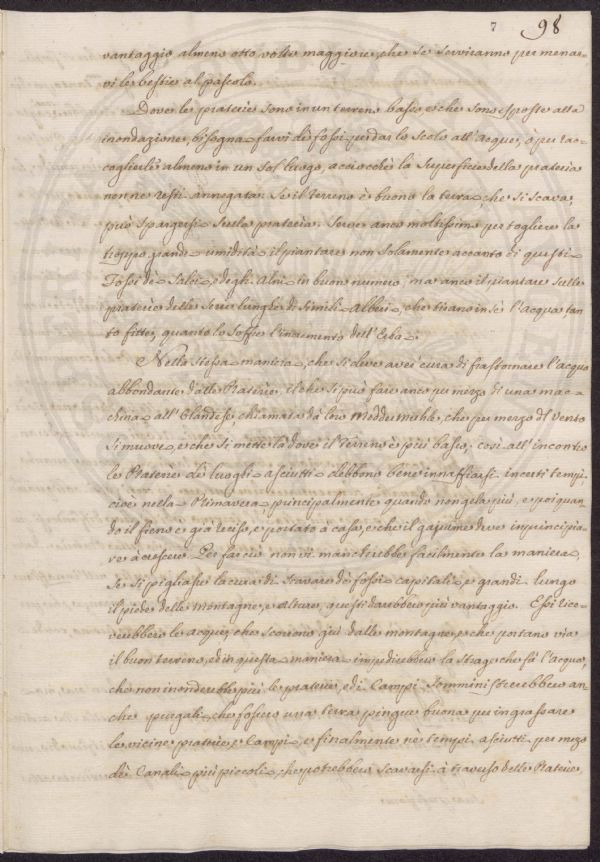 7 98
vantaggio almeno otto volte maggiore, che se serviranno per menar-
vi le bestie al pascolo.
Dove le praterie sono in un terreno basso, e che sono esposte alla
inondazione, bisogna farvi dei fossi per dar lo scolo all'acque, ò per rac-
coglierle almeno in un sol luogo, acciocchè la superficie della prateria
non ne resti annegata. Se il terreno è buono la terra che si scava,
può spargersi sulla prateria. Serve anco moltissimo per togliere la
troppo grande umidità il piantare non solamente accanto di questi
Fossi de Salci, e degli Alni in buon numero, ma anco il piantare sulle
praterie delle serie lunghe di simili Alberi, che tirano in sè l'Acqua, tan-
to fitte, quanto lo soffre l'incremento dell'Erba.
Nella stessa maniera, che si deve aver cura di frastornare l'acqua
abbondante dalle Praterie, il che si può fare anco per mezzo di una mac-
china all'Olandese, chiamata da loro Meddermuhle, che per mezzo del Vento
si muove, e che si mette là dove il Terreno è più basso; così all'incontro
le Praterie dei luoghi asciutti debbono bene innaffiarsi in certi tempi
cioè nella Primavera principalmente quando non gela più, e poi quan-
do il fieno è già reciso, e portato à casa, e che il gajume deve imprincipia-
re à crescere. Per far ciò non vi mancherebbe facilmente la maniera,
se si pigliasse la cura di scavare dei fossi capitali, e grandi lungo
il piede delle montagne, e alture, questi darebbero più vantaggio. Essi rice-
verebbero le acque, che scorrono giù dalle montagne, e che portano via
il buon terreno, ed in questa maniera impedirebbero la strage che fà l'Acqua,
che non inonderebbe più le praterie, ed i Campi. Somministrerebbero an-
che purgati che fossero una terra pingue buona per ingrassare
le vicine praterie, e Campi, e finalmente ne' tempi asciutti per mezo
dei Canali più piccoli, che potrebbero scavarsi à traverso delle Praterie,